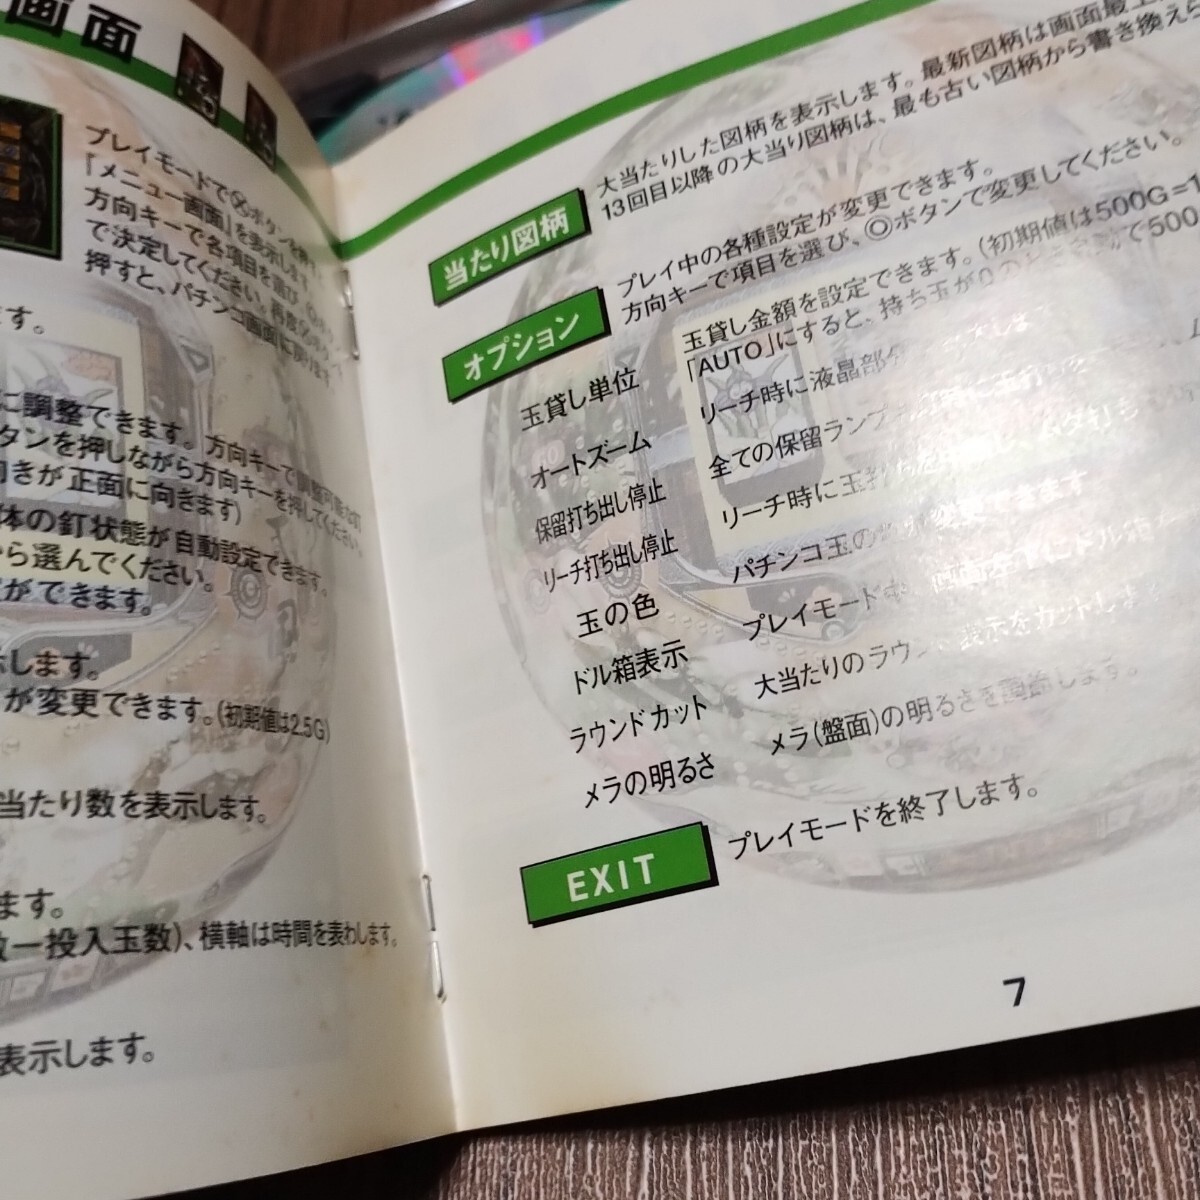 画面
プレイモードで⊗ボタンを押す
「メニュー画面」を表示します
方向キーで各項目を選び
で決定してください。再度
押すと、パチンコ画面に戻ります
ます。
に調整できます。方向キーで調整可能な釘
タンを押しながら方向キーを押してください。
向きが正面に向きます)
体の釘状態が自動設定できます。
から選んでください。
ができます。
示します。
が変更できます。(初期値は2.5G)
当たり数を表示します。
ます。
数ー投入玉数)、横軸は時間を表わします。
表示します。
当たり図柄
大当たりした図柄を表示します。最新図柄は画面最上
13回目以降の大当り図柄は、最も古い図柄から書き換えら
オプション
プレイ中の各種設定が変更できます。
方向キーで項目を選び、◎ボタンで変更してください。
玉貸し単位
玉貸し金額を設定できます。(初期値は500G=1
「AUTO」にすると、持ち玉が0のとき で500
オートズーム
リーチ時に液晶部分
保留打ち出し停止
全ての保留ランプ
リーチ打ち出し停止
リーチ時に玉打
玉の色
パチンコ玉の 変更できます
ドル箱表示
プレイモード中 画面 ドル箱
ラウンドカット
大当たりのラウン 表示をカットしま
メラの明るさ
メラ(盤面)の明るさを調節します。
EXIT
プレイモードを終了します。
7